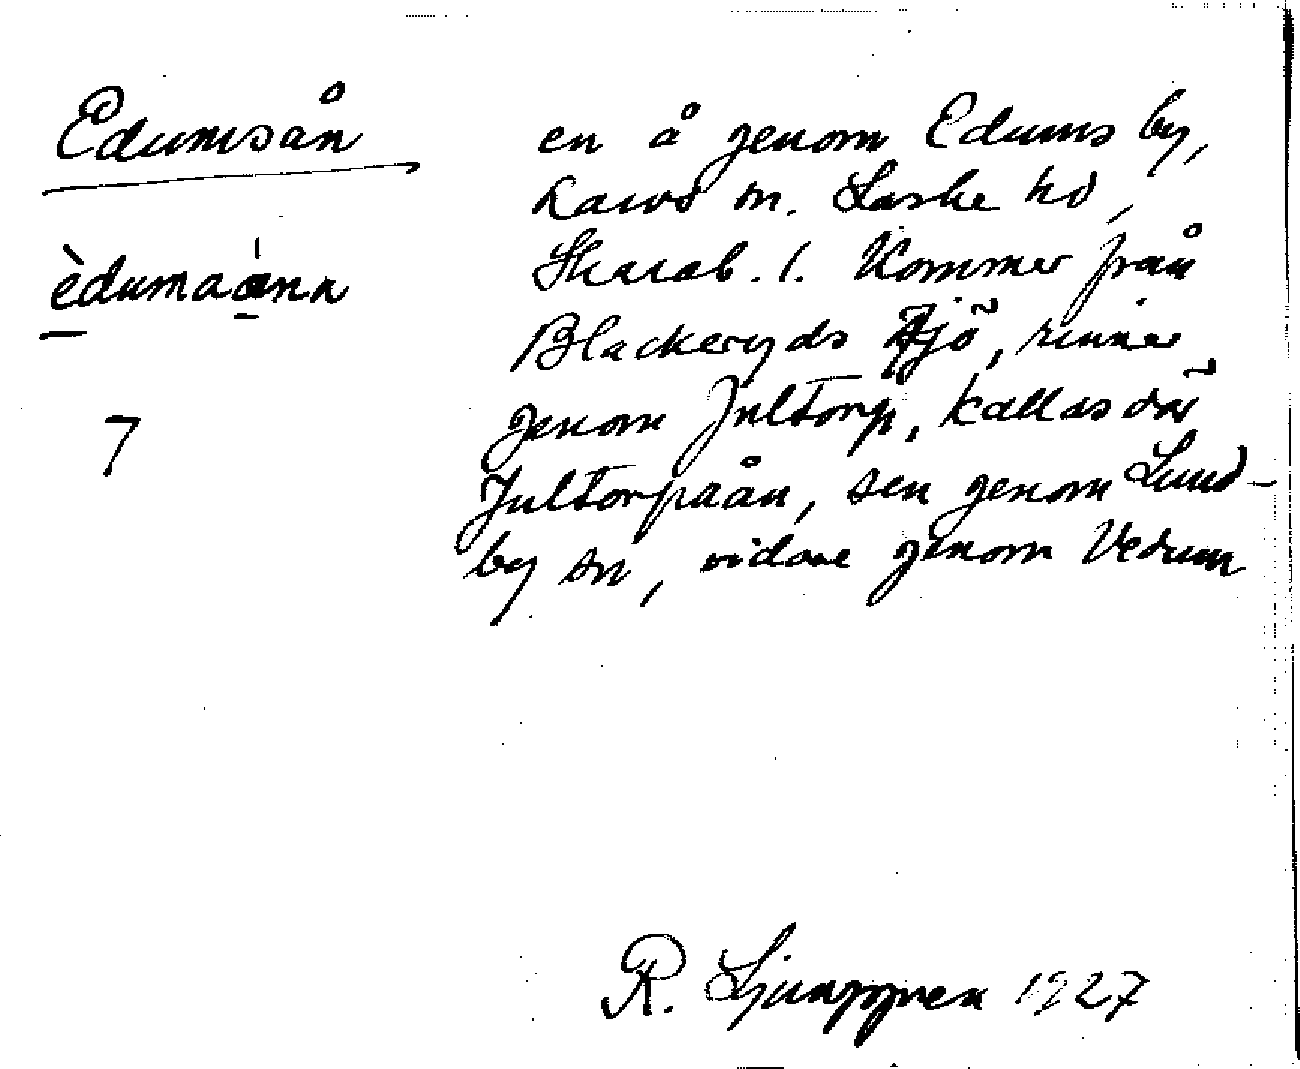 Edumsån
èdumaánn
7
en å genom Edums by,
Larvs sn. Laske hd,
Skarab. l. Kommer från
Blackeryds sjö, rinner
genom Jultorp, kallas där
Jultorpaån, sen genom Lund-
by sn, vidare genom Vedum
R. Ljunggren 1927